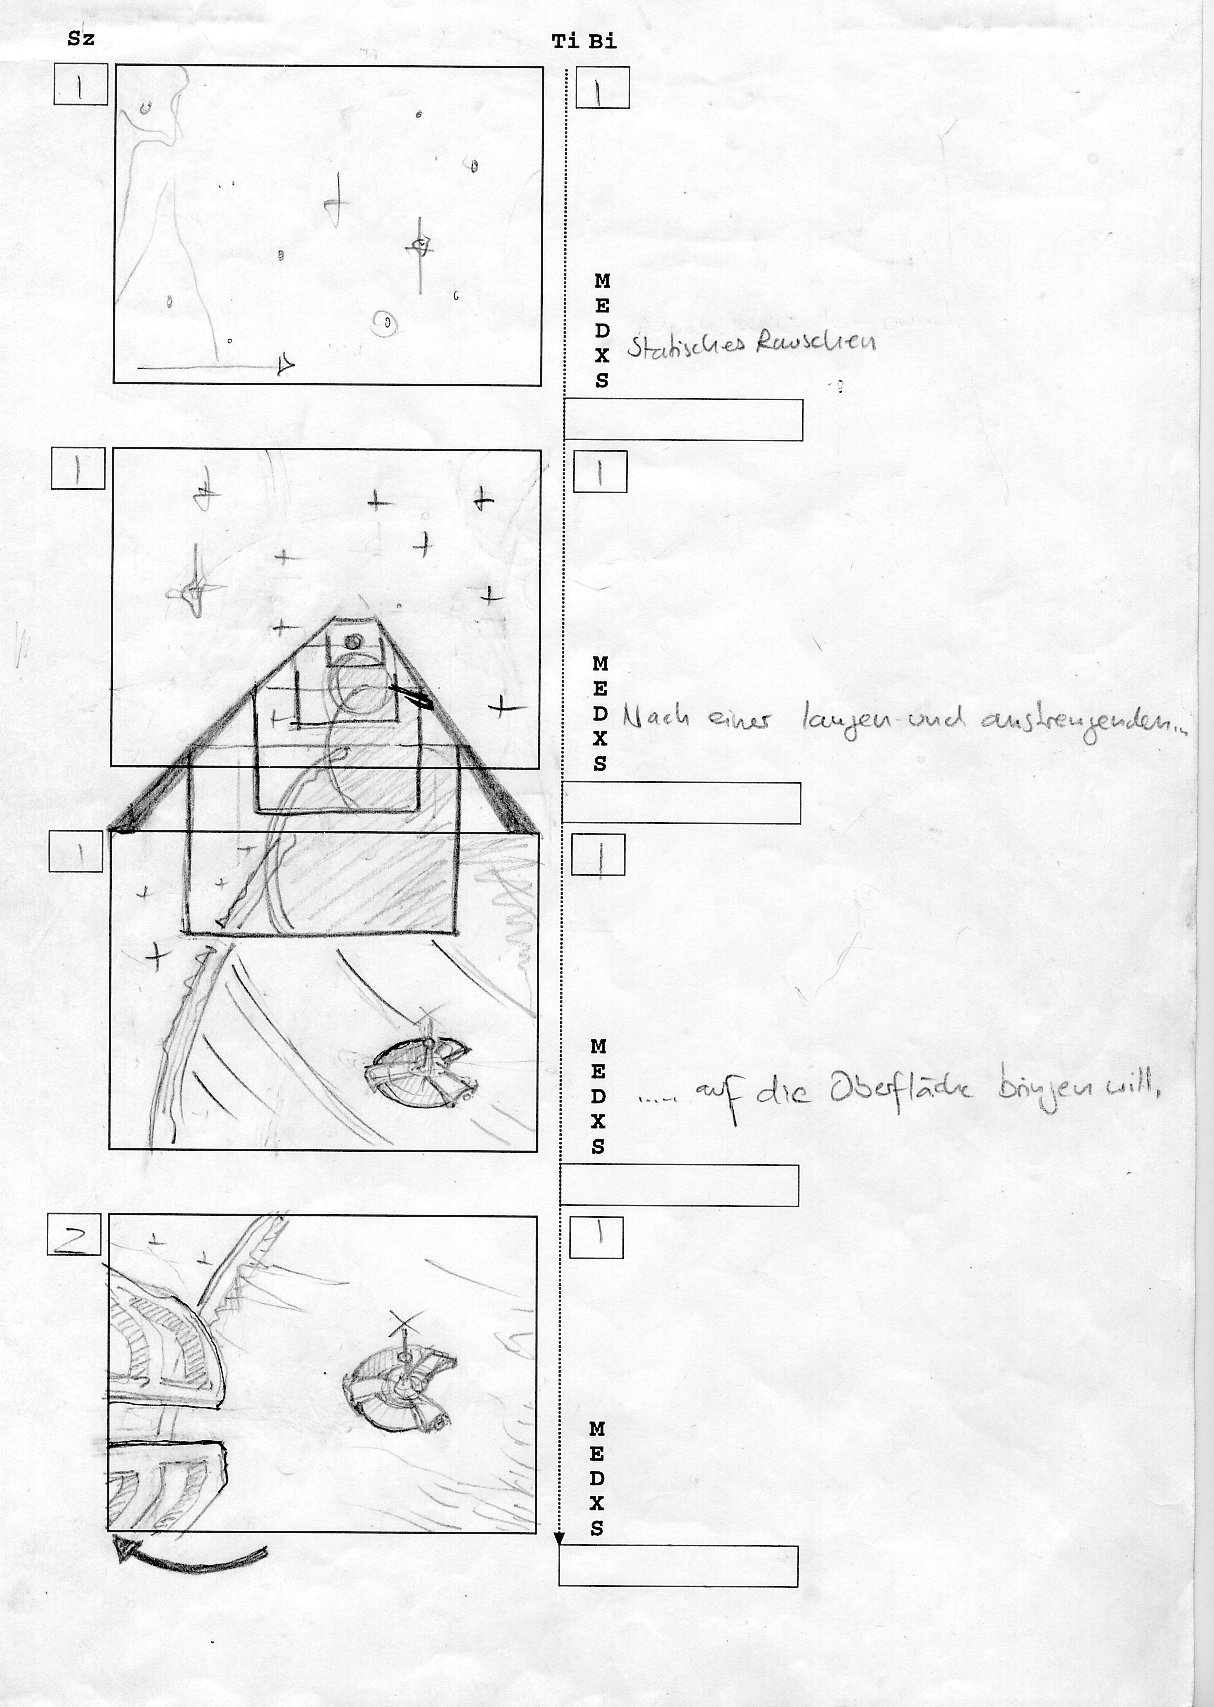 Sz Ti Bi
1 1
M
E
D Statisches Rauschen
X
S
1 1
M
E
D Nach einer langen und anstrengenden...
X
S
1 1
M
E
D ..... auf die Oberfläche bringen will.
X
S
2 1
M
E
D
X
S